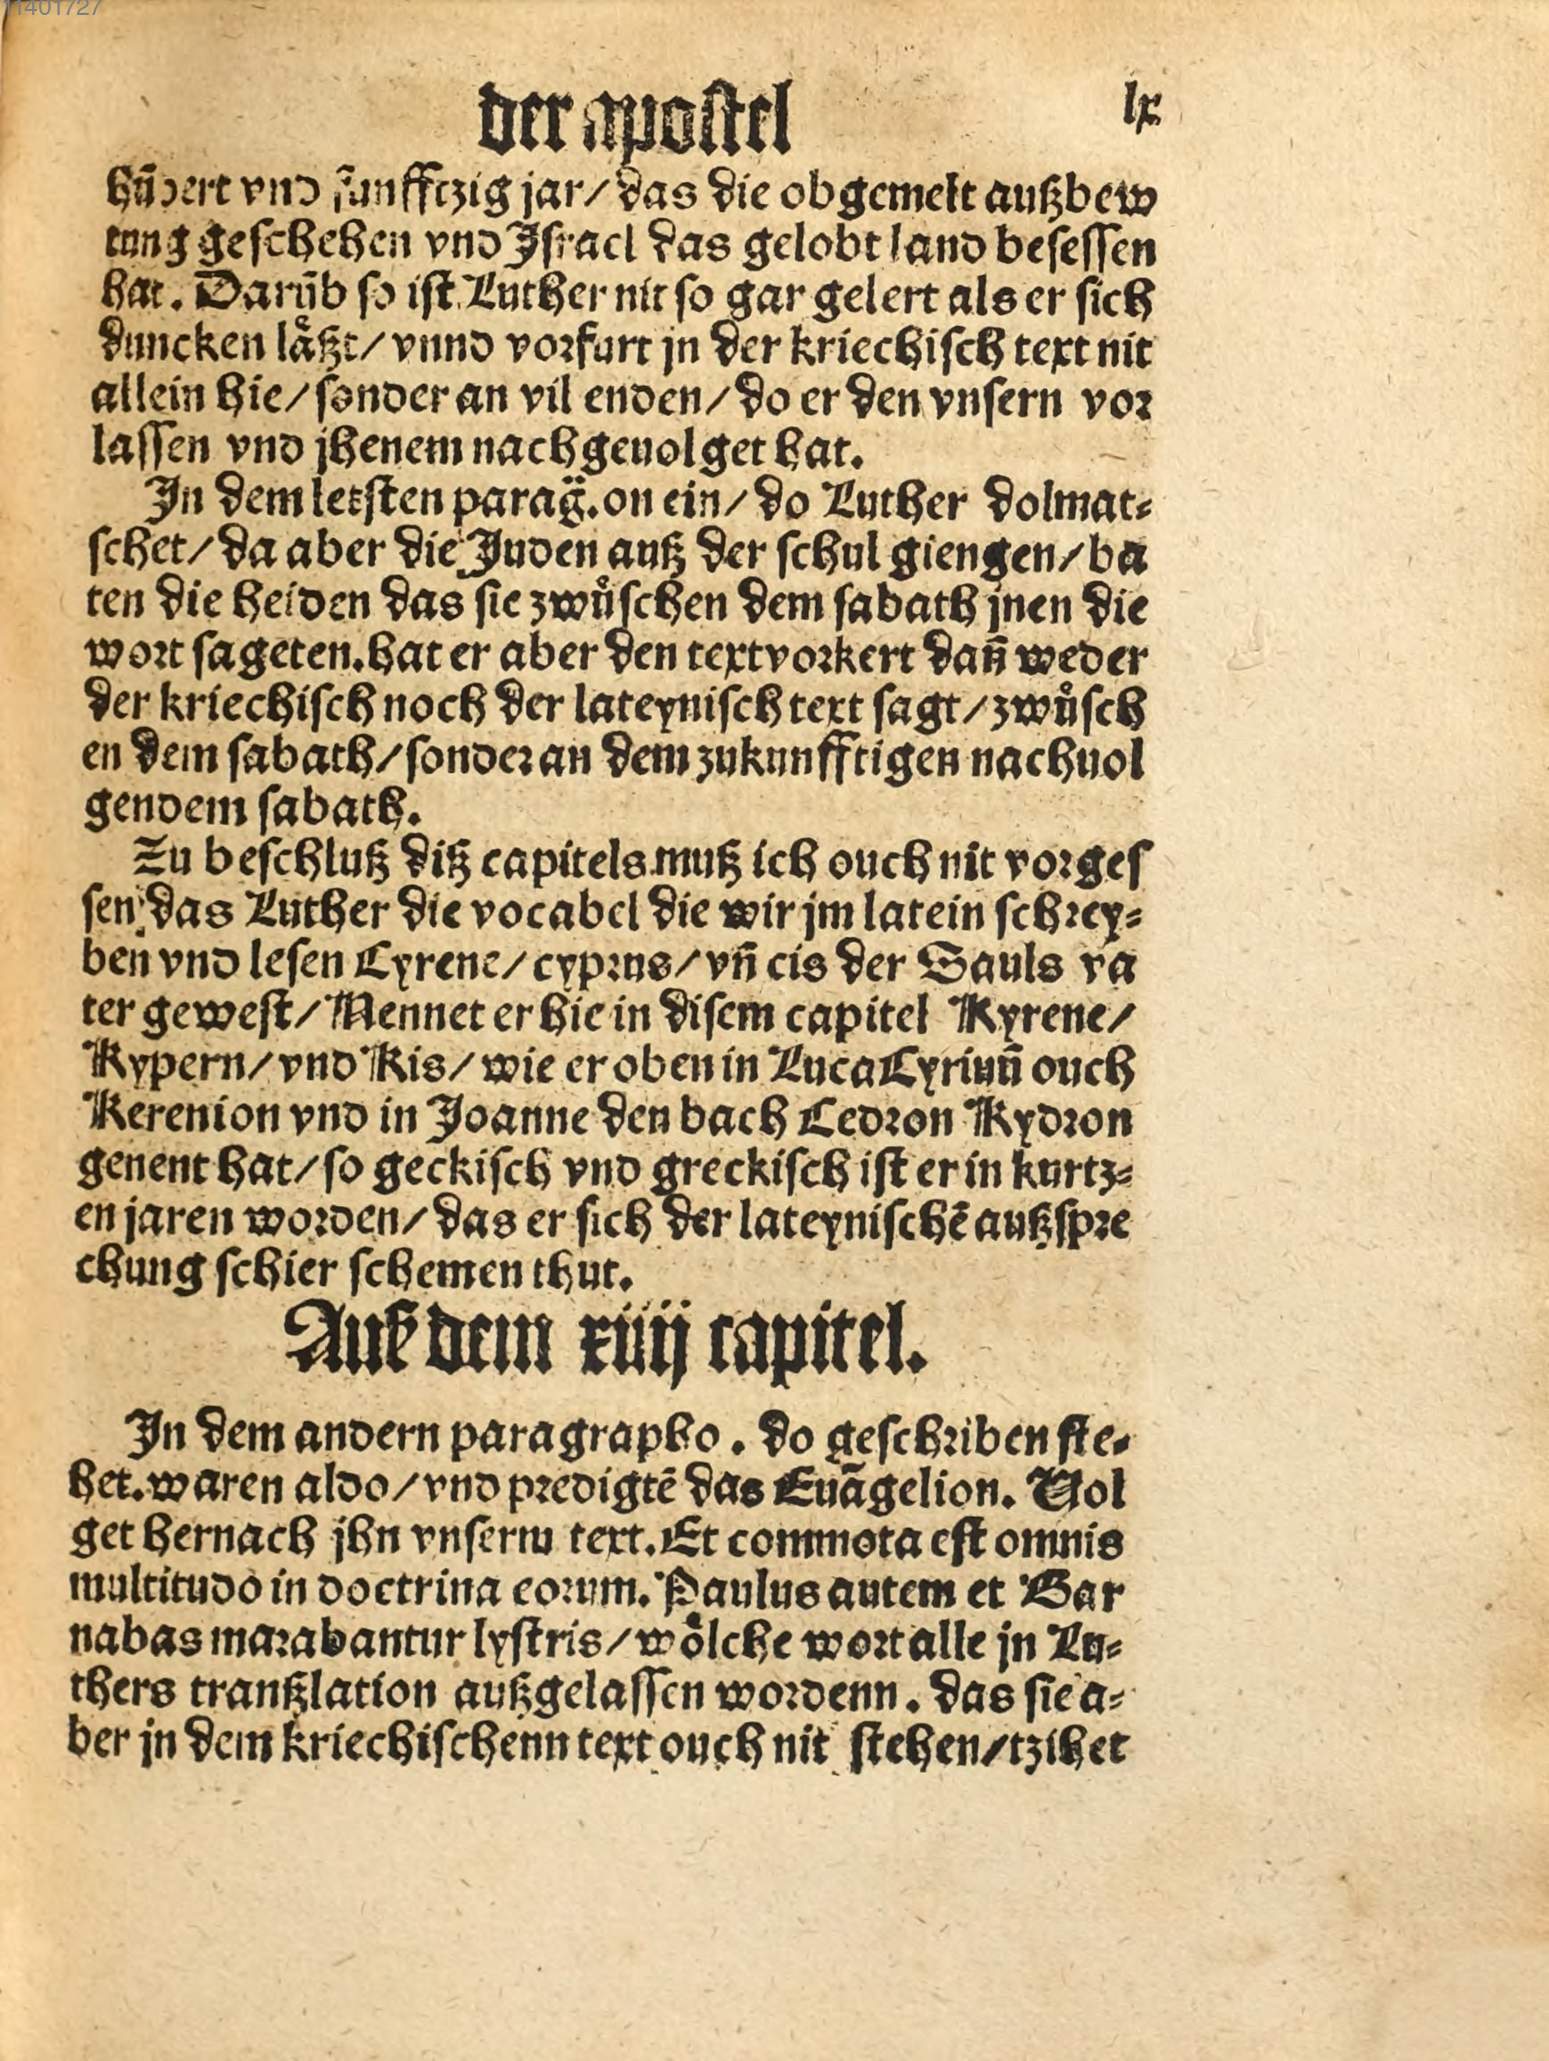 11401727
der apostel lx
hūdert vnd funfftzig jar/ das die obgemelt außbew
tung geschehen vnd Israel das gelobt land besessen
hat. Darūb so ist Luther nit so gar gelert als er sich
duncken låßt/ vnnd vorfurt jn der kriechisch text nit
allein hie/ sonder an vil enden/ do er den vnsern vor
lassen vnd jhenem nachgeuolget hat.
In dem letsten paragͣ. on ein/ do Luther dolmat⸗
schet/ da aber die Juden auß der schul giengen/ ba
ten die heiden das sie zwůschen dem sabath jnen die
wort sageten. hat er aber den text vorkert dañ weder
der kriechisch noch der lateynisch text sagt/ zwůsch
en dem sabath/ sonder an dem zukunfftigen nachuol
gendem sabath.
Zu beschluß diß capitels muß ich ouch nit vorges
sen das Luther die vocabel die wir jm latein schrey⸗
ben vnd lesen Cyrene/ cyprus/ vñ cis der Sauls va
ter gewest/ Nennet er hie in disem capitel Kyrene/
Kypern/ vnd Kis/ wie er oben in Luca Cyriuñ ouch
Kerenion vnd in Joanne den bach Cedron Kydron
genent hat/ so geckisch vnd greckisch ist er in kurtz⸗
en jaren worden/ das er sich der lateynischē außspre
chung schier schemen thut.
Auß dem xiiij capitel.
In dem andern paragrapho. do geschriben ste⸗
het. waren aldo/ vnd predigtē das Euāgelion. Uol
get hernach jhn vnserm text. Et commota est omnis
multitudo in doctrina eorum. Paulus autem et Bar
nabas marabantur lystris/ wőlche wort alle jn Lu⸗
thers tranßlation außgelassen wordenn. das sie a⸗
ber jn dem kriechischenn text ouch nit stehen/ tzihet